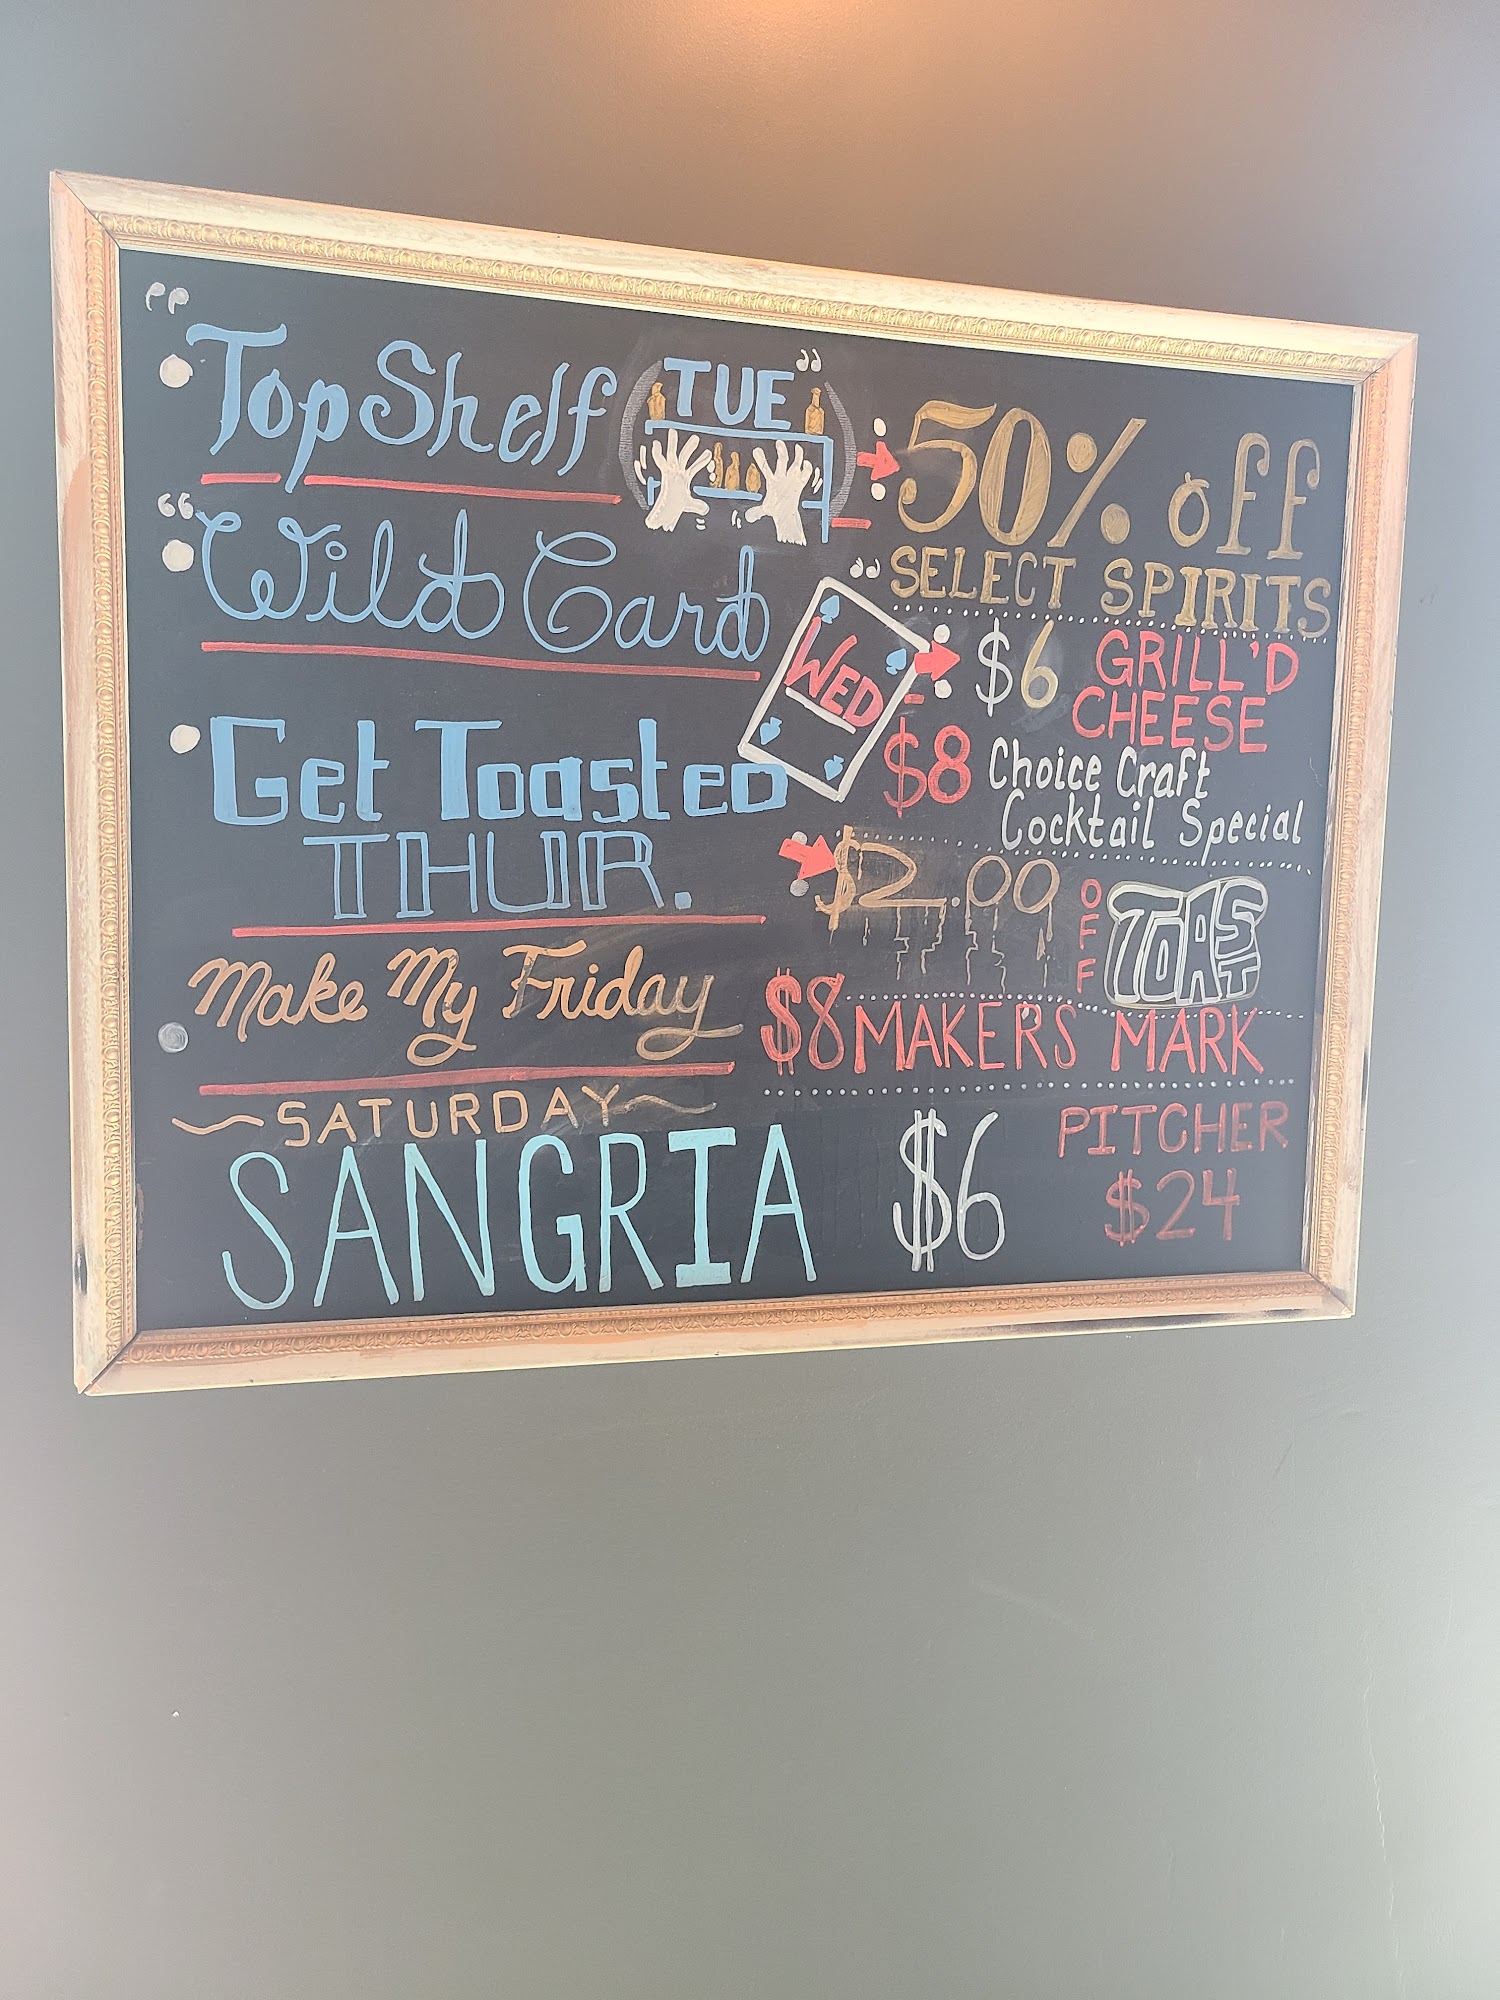 "Top Shelf TUE" 50% off
SELECT SPIRITS
"Wild Card WED" $6 GRILL'D
CHEESE
$8 Choice Craft
Cocktail Special
Get Toasted
THUR.
$2.00 OFF TOAST
Make My Friday $8 MAKER'S MARK
~SATURDAY~
SANGRIA $6 PITCHER
$24